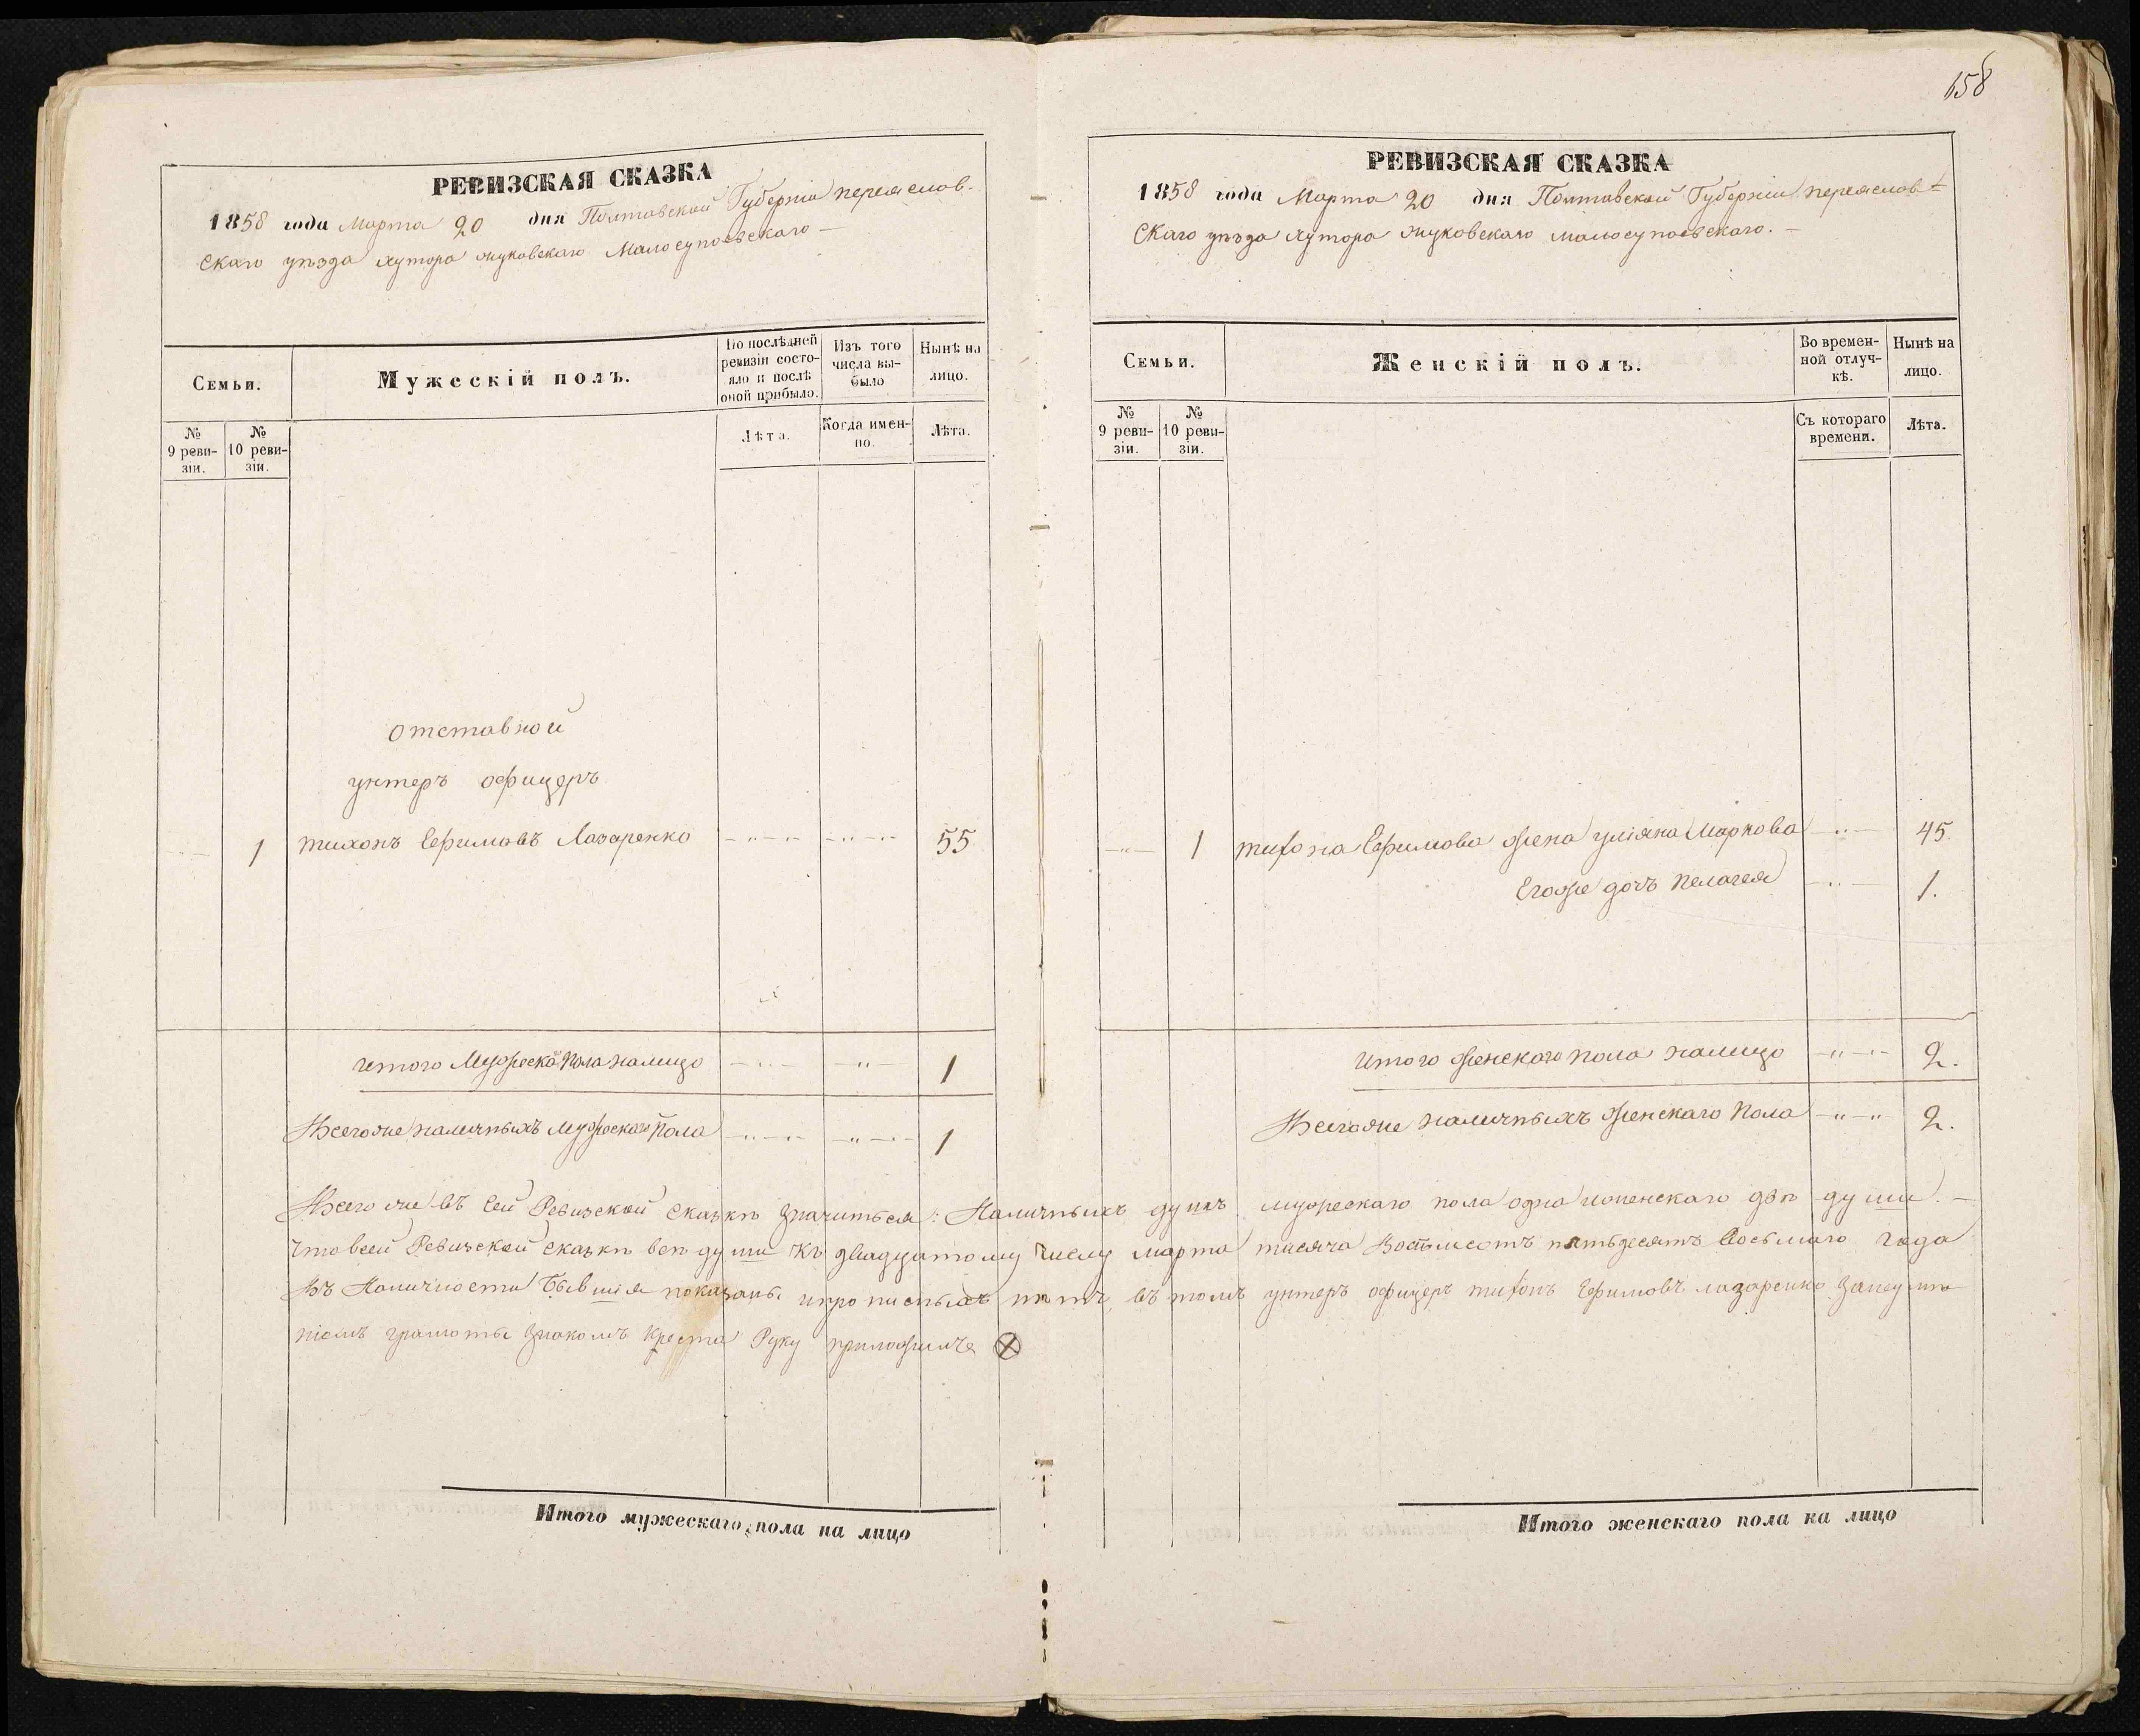 158
РЕВИЗСКАЯ СКАЗКА
1858 года Марта 20 дня Полтавской Губернiи переяслов-
скаго уѣзда хутора жуковскаго Малосупоевскаго —
Семьи.
Мужескiй полъ.
По послѣдней ревизiи состояло и послѣ оной прибыло.
Изъ того числа выбыло
Нынѣ на лицо.
№ 9 ревизiи.
№ 10 ревизiи.
Лѣта.
Когда именно.
Лѣта.
отставной
унтеръ офицеръ
1 тихонъ Ефимовъ Лазаренко 55
итого Мужеска пола налицо 1
Всегоже наличныхъ Мужескаго пола 1
РЕВИЗСКАЯ СКАЗКА
1858 года Марта 20 дня Полтавской Губернiи переяслов-
скаго уѣзда хутора жуковскаго малосупоевскаго. —
Семьи.
Женскiй полъ.
Во временной отлучкѣ.
Нынѣ на лицо.
№ 9 ревизiи.
№ 10 ревизiи.
Съ котораго времени.
Лѣта.
1 тихона Ефимова жена улiяна Маркова 45.
Егоже дочъ пелагея 1.
итого женскаго пола налицо 2.
Всегоже наличныхъ женскаго пола 2.
Всего же въ сей Ревизской сказкѣ значиться: Наличныхъ душъ мужескаго пола одна иженскаго двѣ души. —
Что всей Ревизской сказкѣ всѣ души къ двадцатому числу марта тисяча восемсотъ пятьдесятъ восьмаго года
Въ Наличности бывшiя показаны ипрописныхъ нѣтъ, въ томъ унтеръ офицеръ тихонъ Ефимовъ лазаренко занеумѣ
нiемъ грамоты знакомъ креста Руку приложилъ
Итого мужескаго пола на лицо
Итого женскаго пола на лицо